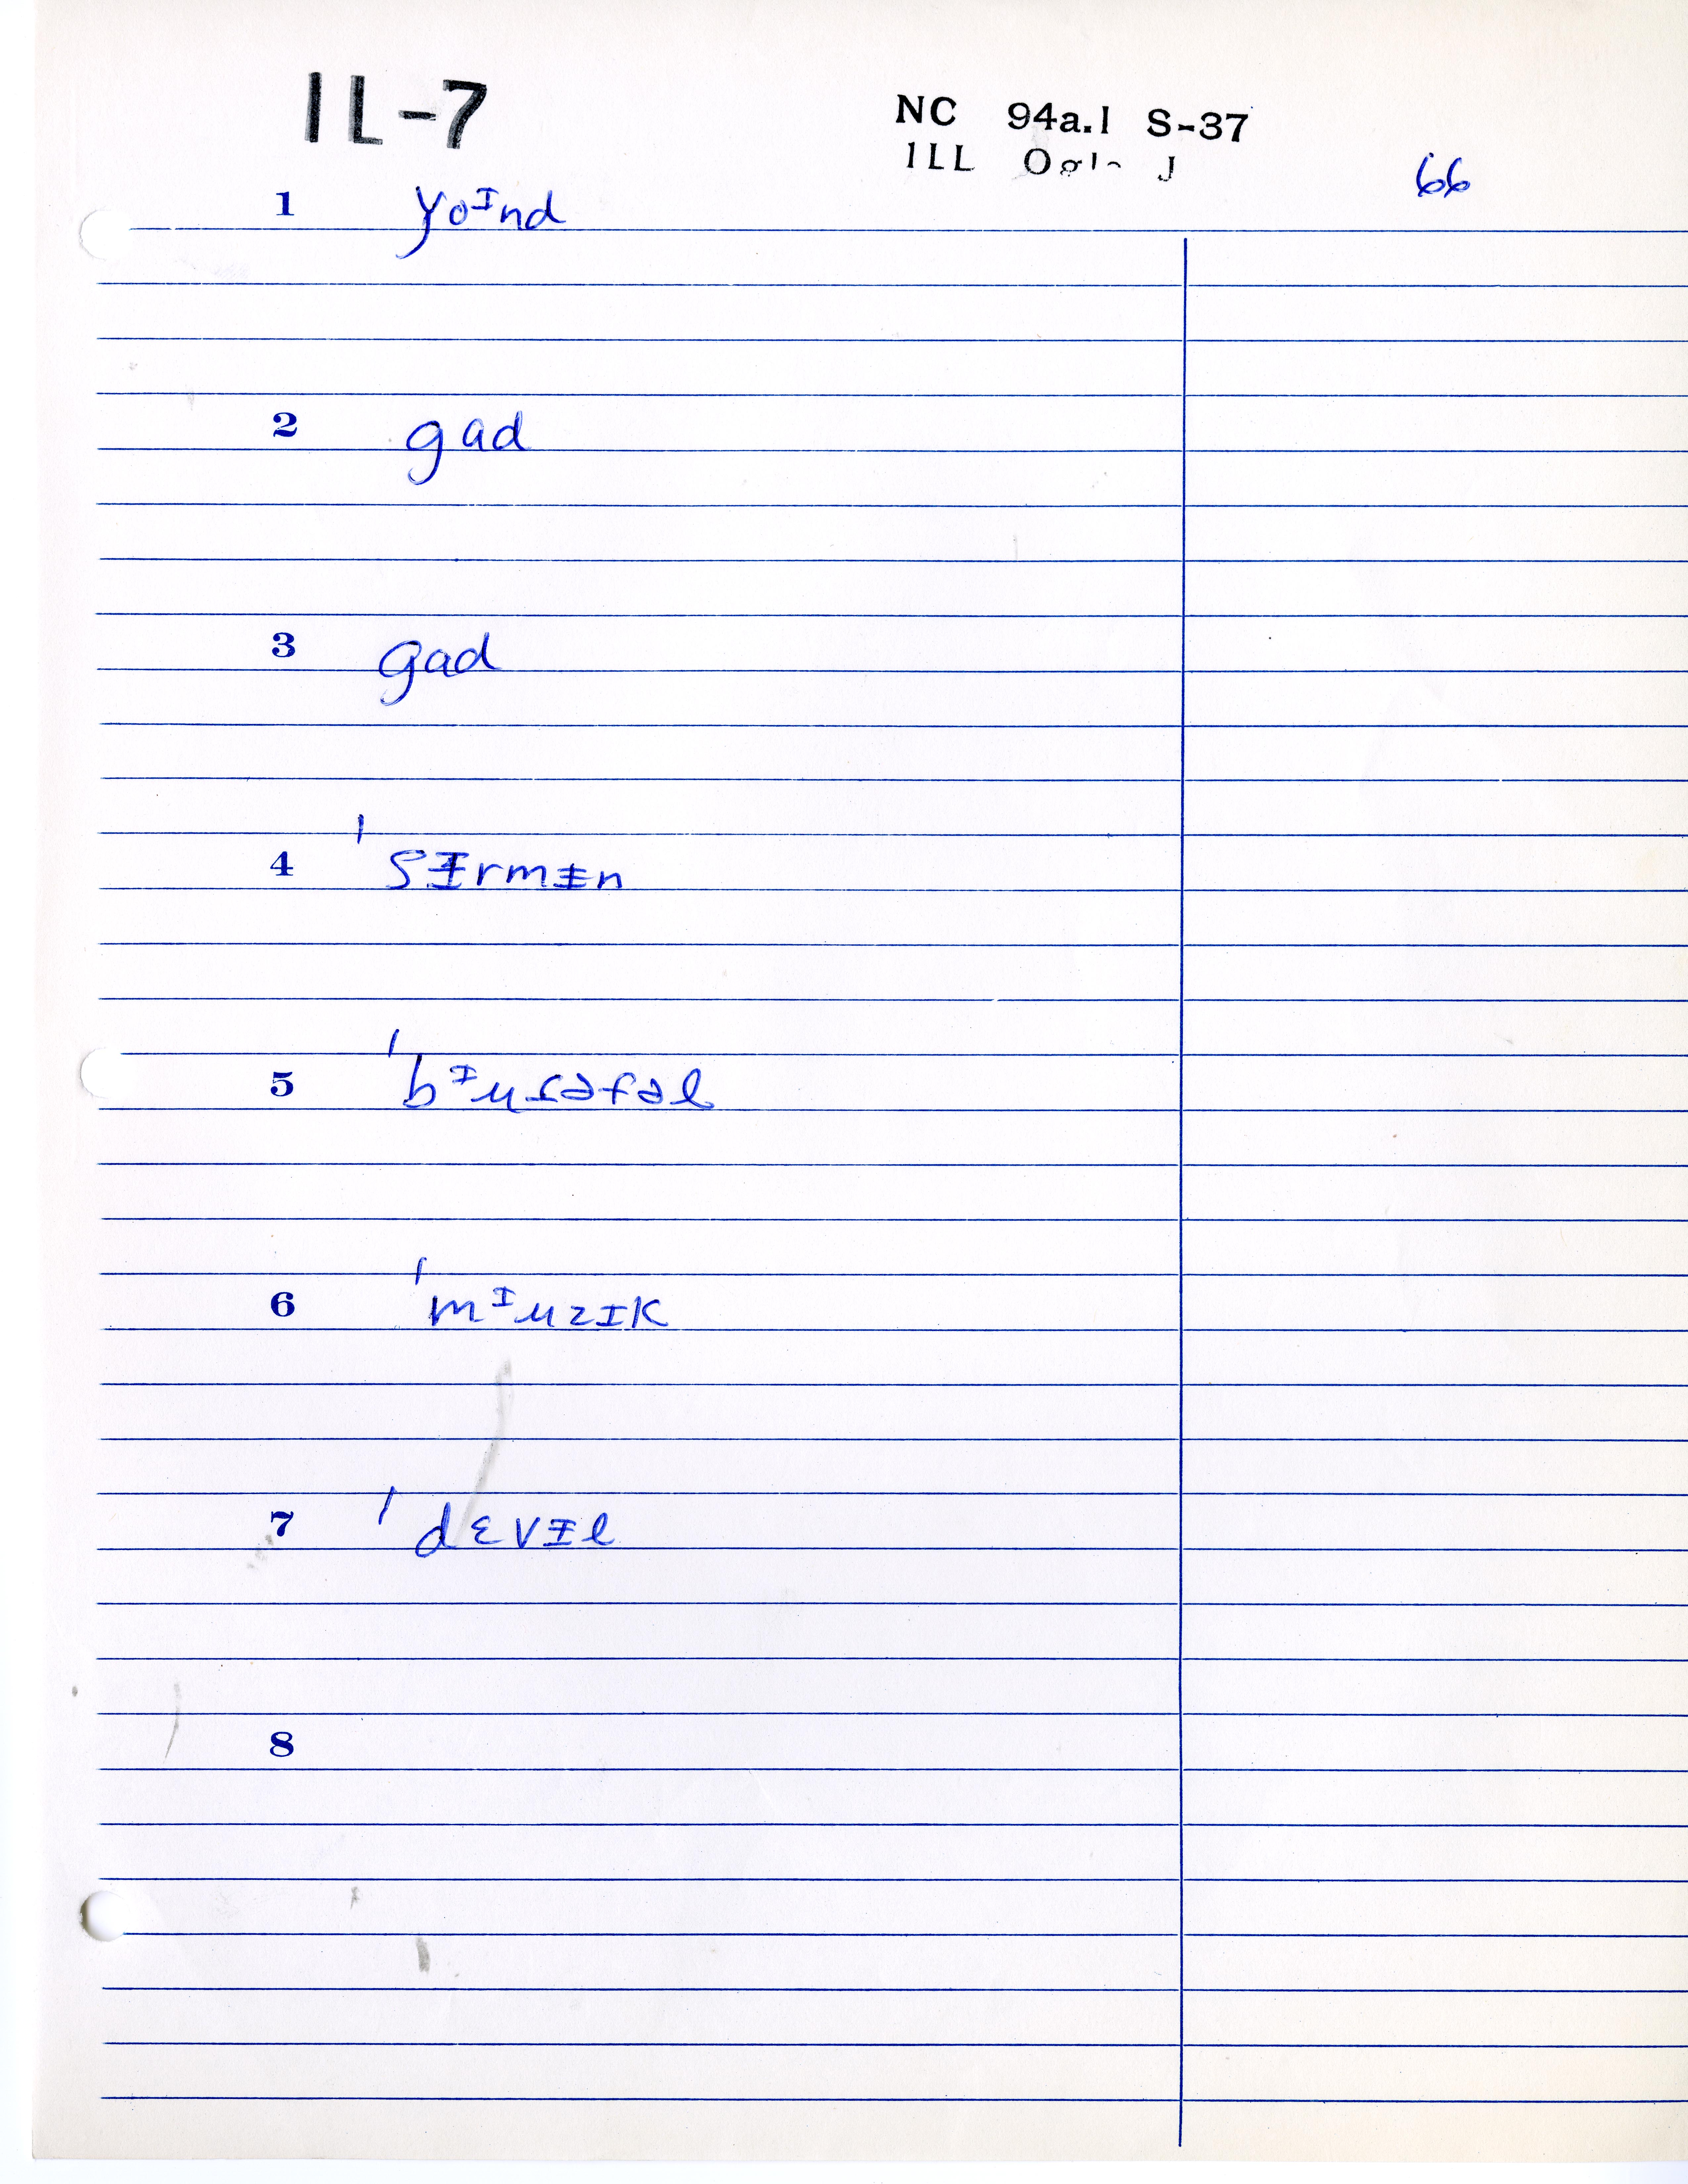 IL-7
NC 94a.1 S-37
ILL Ogle J
66
1 yoᶦnd
2 gad
3 gad
4 ˈsᵻrmᵻn
5 ˈbᶦuɾəfəl
6 ˈmᶦuzɪk
7 ˈdɛvᵻl
8